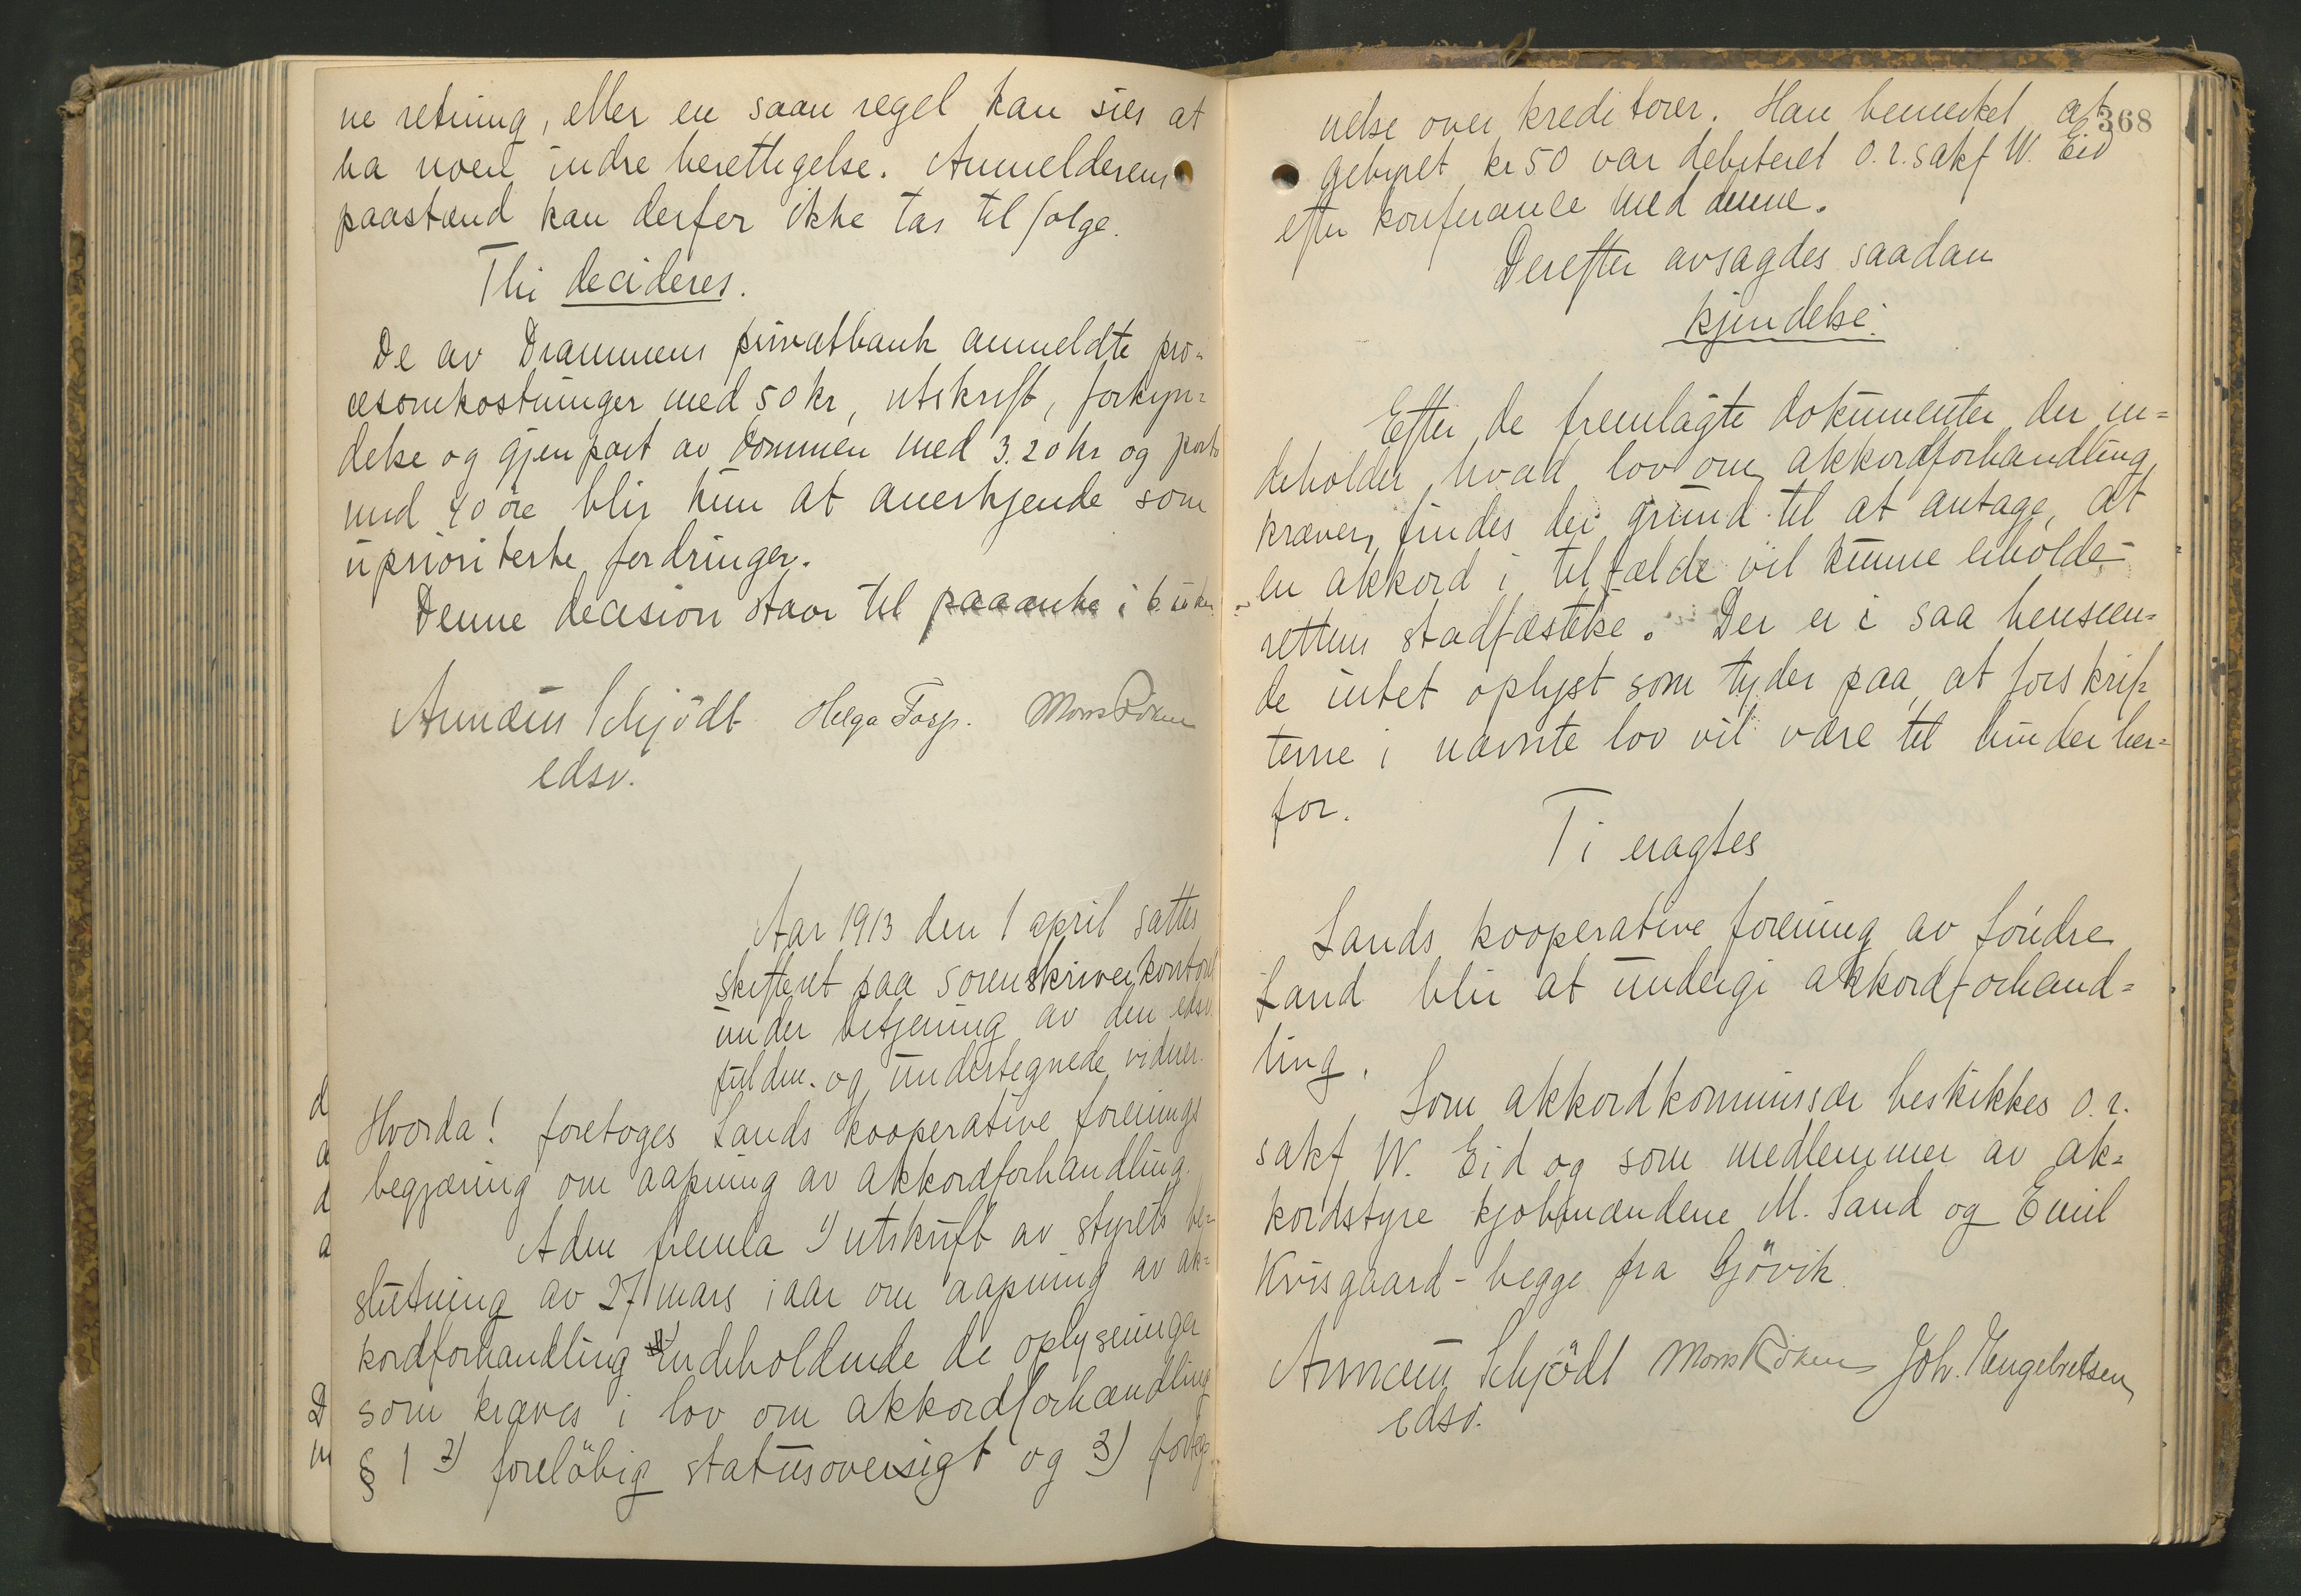 ne retning, eller en saan regel kan sies at
ha noen indre berettigelse. Anmelderens
paastand kan derfor ikke tas til følge.
Thi decideres.
De av Drammens privatbank anmeldte pro-
cesomkostninger med 50 kr, utskrift, forkyn=
delse og gjenpart av dommen med 3.20 kr og porto
med 40 øre blir kun at anerkjende som
uprioriterte fordringer.
Denne decision staar til paaanke i 6 uker
Annæus Schjødt Helge Fosp. Mons Røken
edsv.
Aar 1913 den 1 april sattes
skifteret paa sorenskriverkontoret
under betjening av den edsv.
fuldm. og undertegnede vidner.
Hvorda! foretoges Lands kooperative forenings
begjæring om aapning av akkordforhandling.
Adm fremla 1) utskrift av styrets be=
slutning av 27 mars i aar om aapning av ak=
kordforhandling indeholdende de oplysninger
som kræves i lov om akkordforhandling
§ 1 2) foreløbig statusoversigt og 3) forteg=
368
nelse over kreditorer. Han bemerket at
gebyret kr 50 var debiteret o.r.sakf W. Eid
efter konferance med denne.
Derefter avsagdes saadan
kjendelse:
Efter de fremlagte dokumenter der in=
deholder hvad lov om akkordforhandling
kræver, findes der grund til at antage, at
en akkord i tilfælde vil kunne erholde
rettens stadfæstelse. Der er i saa henseen=
de intet oplyst som tyder paa, at forskrif=
terne i nævnte lov vil være til hinder her=
for.
Ti eragtes
Lands kooperative forening av Søndre
Land blir at undergi akkordforhand=
ling.
Som akkordkommissær beskikkes o.r.
sakf W. Eid og som medlemmer av ak=
kordstyre kjøbmændene M. Sand og Emil
Kvisgaard - begge fra Gjøvik.
Annæus Schjødt Mons Røken Joh. Engebretsen
edsv.